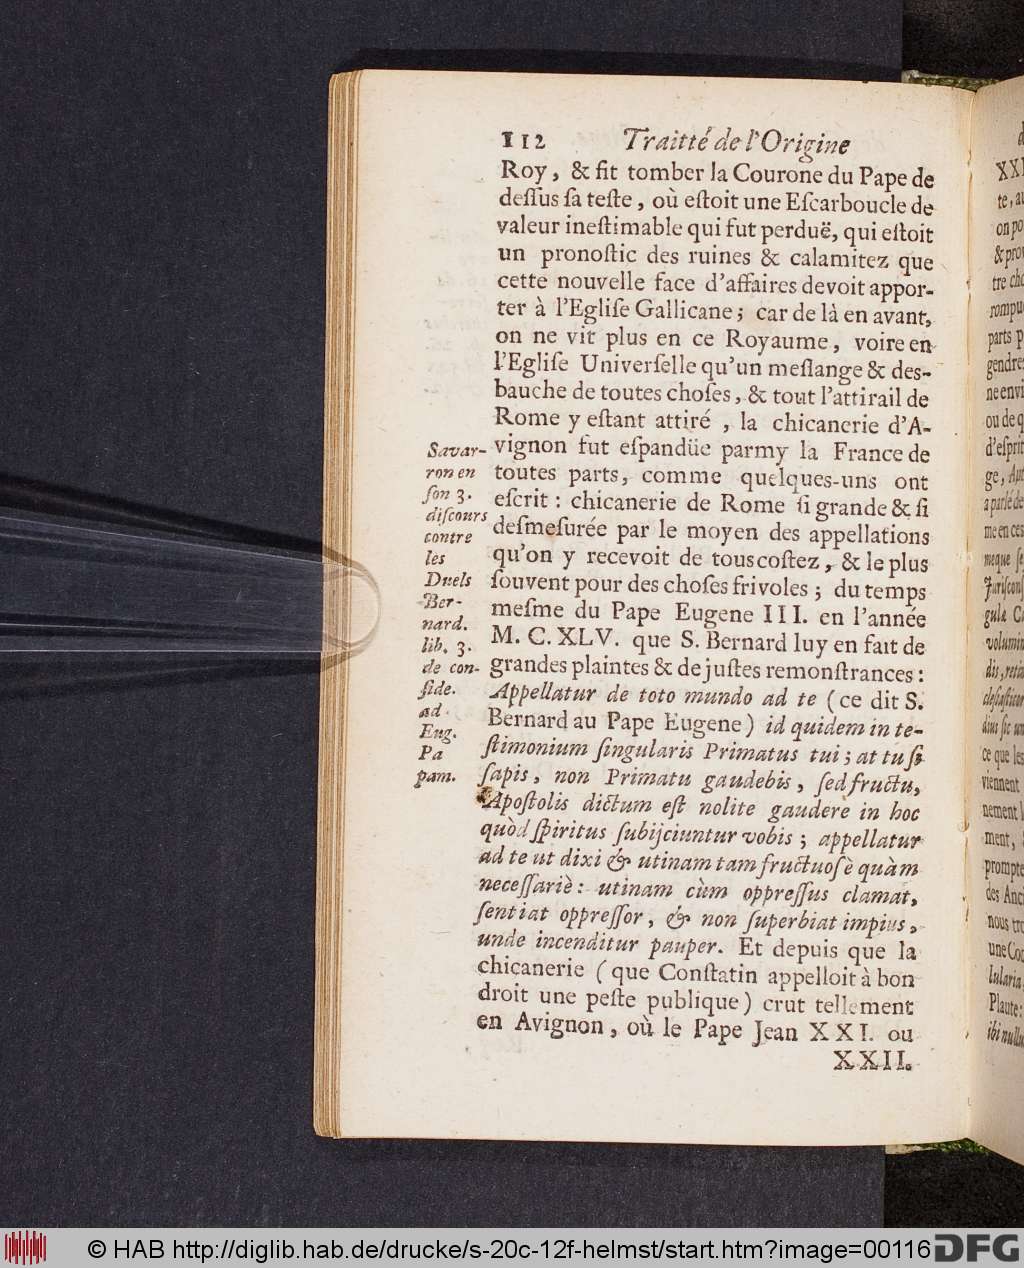 112 Traitté de l'Origine
Roy, & fit tomber la Courone du Pape de
deſſus ſa teſte, où eſtoit une Eſcarboucle de
valeur ineſtimable qui fut perduë, qui eſtoit
un pronoſtic des ruines & calamitez que
cette nouvelle face d'affaires devoit appor-
ter à l'Egliſe Gallicane; car de là en avant,
on ne vit plus en ce Royaume, voire en
l'Egliſe Univerſelle qu'un meſlange & des-
bauche de toutes choſes, & tout l'attirail de
Rome y eſtant attiré, la chicanerie d'A-
vignon fut eſpandüe parmy la France de
toutes parts, comme quelques-uns ont
eſcrit: chicanerie de Rome ſi grande & ſi
deſmeſurée par le moyen des appellations
qu'on y recevoit de tous coſtez, & le plus
ſouvent pour des choſes frivoles; du temps
meſme du Pape Eugene III. en l'année
M. C. XLV. que S. Bernard luy en fait de
grandes plaintes & de juſtes remonſtrances:
Appellatur de toto mundo ad te (ce dit S.
Bernard au Pape Eugene) id quidem in te-
ſtimonium ſingularis Primatus tui; at tu ſi
ſapis, non Primatu gaudebis, ſed fructu,
Apoſtolis dictum eſt nolite gaudere in hoc
quòd ſpiritus ſubijciuntur vobis; appellatur
ad te ut dixi & utinam tam fructuoſè quàm
neceſſariè: utinam cùm oppreſſus clamat,
ſentiat oppreſſor, & non ſuperbiat impius,
unde incenditur pauper. Et depuis que la
chicanerie (que Conſtatin appelloit à bon
droit une peſte publique) crut tellement
en Avignon, où le Pape Jean XXI. ou
XXII.
Savar-
ron en
ſon 3.
diſcours
contre
les
Duels
Ber-
nard.
lib. 3.
de con-
ſide.
ad
Eug.
Pa
pam.
te, au
on po
& prov
tre cho
rompu
parts p
gendre
ne envi
ou de q
d'eſprit
ge, Aut
a parlé de
me en ces
meque ſe
Juriſconſ
volumin
ce que les
viennent
nement l
ment,
prompte
des Anci
nous tro
une Co
lularia
Plaute:
ibi nullu
© HAB http://diglib.hab.de/drucke/s-20c-12f-helmst/start.htm?image=00116
DFG